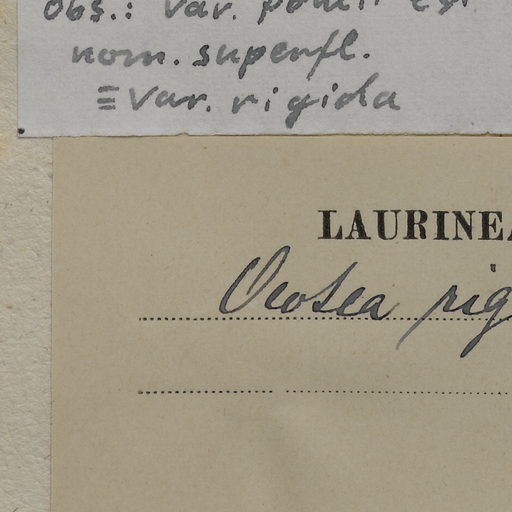 Obs.: Var. est
nom. superfl.
≡ Var. rigida
LAURINEA
Ocotea rig